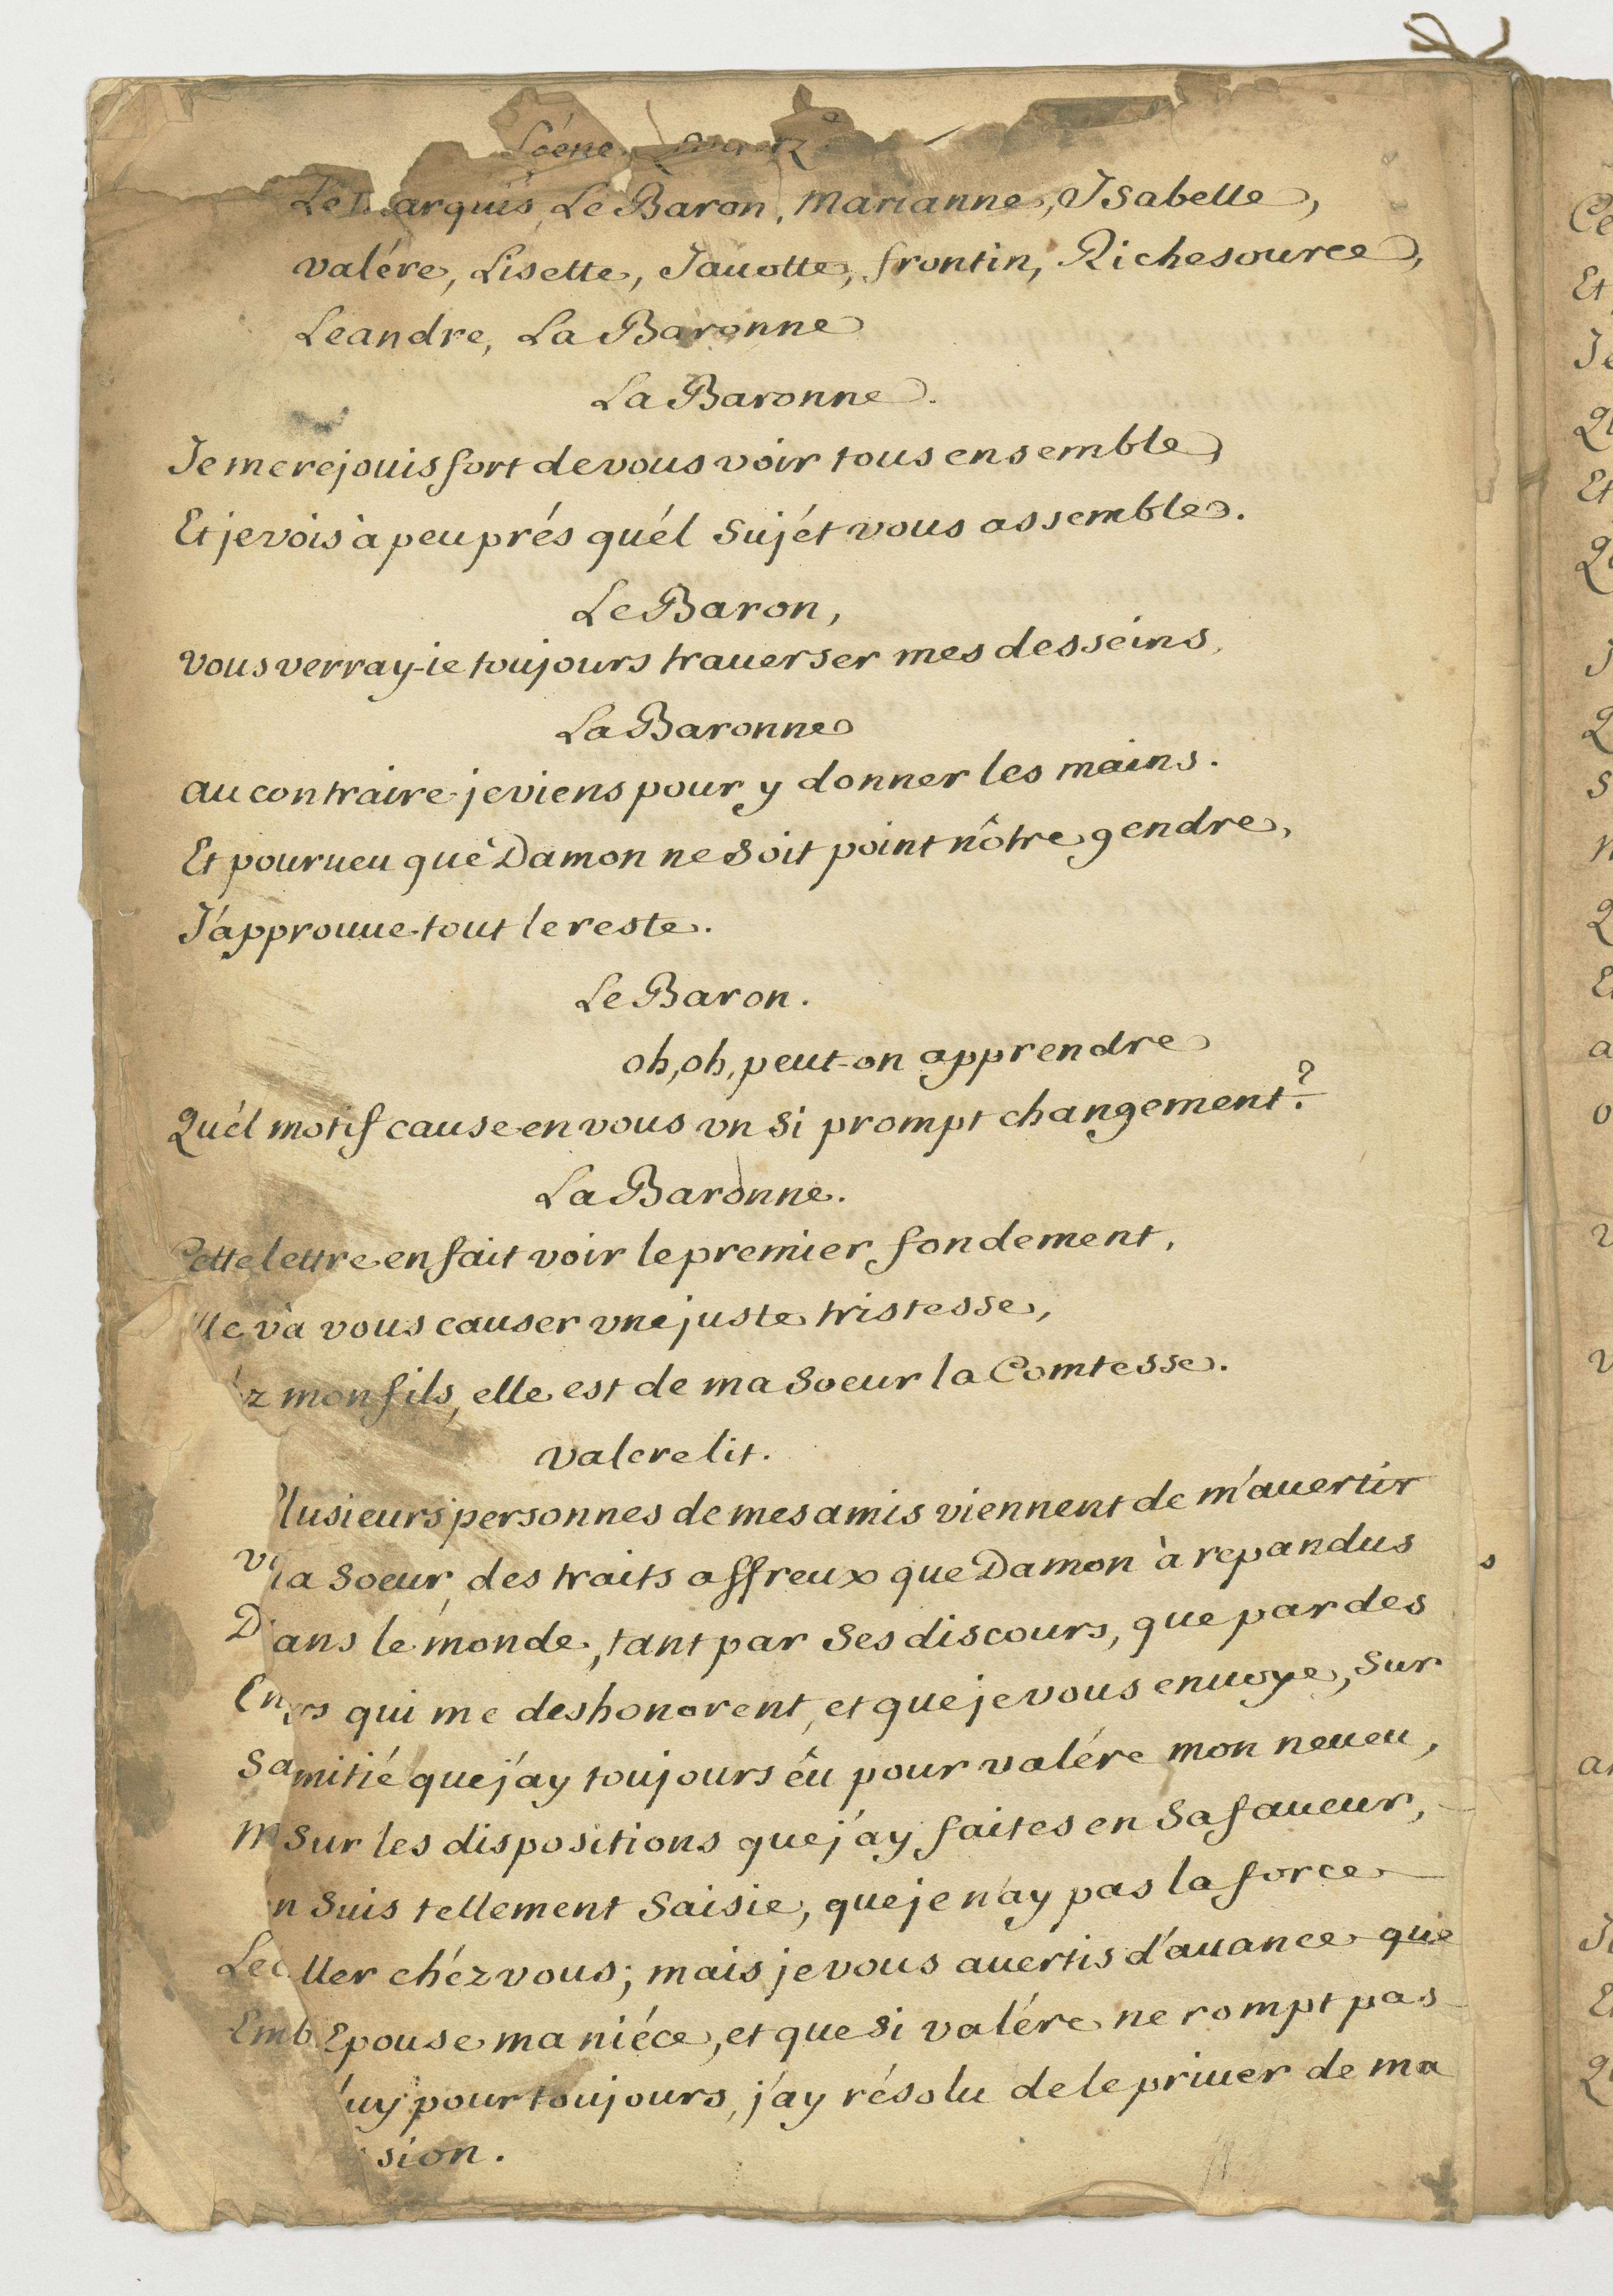 Scéne
Le Marquis, Le Baron, Marianne, Isabelle,
valére, Lisette, Jauotte, frontin, Richesource,
Leandre, La Baronne
La Baronne.
Je me rejouis fort de vous voir tous ensemble,
Et je vois à peu prés quél Sujét vous assemble.
Le Baron,
vous verray-ie toujours trauerser mes desseins,
La Baronne
au contraire je viens pour y donner les mains.
Et pourueu que Damon ne soit point nôtre gendre,
J'approuue tout le reste.
Le Baron.
oh, oh, peut-on apprendre
Quél motif cause en vous vn si prompt changement?
La Baronne.
Cette lettre en fait voir le premier fondement,
lle và vous causer vne juste tristesse,
z mon fils, elle est de ma Soeur la Comtesse.
valere lit.
Plusieurs personnes de mes amis viennent de m'auertir
ma Soeur, des traits affreux que Damon à repandus
Dans le monde, tant par Ses discours, que par des
rs qui me deshonorent, et que je vous enuoye, Sur
amitié que j'ay toujours êu pour valére mon neueu,
Sur les dispositions que j'ay faites en Sa faueur,
n Suis tellement Saisie, que je n'ay pas la force
ller chéz vous; mais je vous auertis d'auance que
Epouse ma niéce, et que si valére ne rompt pas
luy pour toujours, j'ay résolu de le priuer de ma
sion.